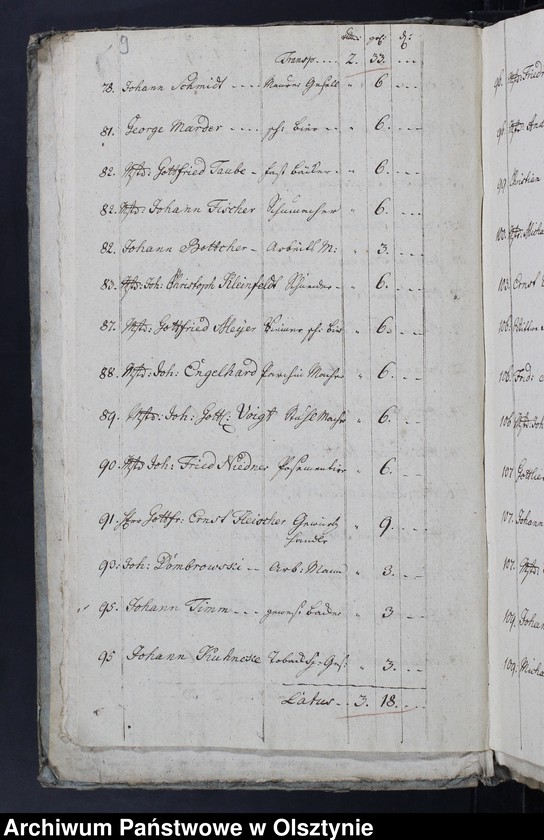 9
Transp. . . . 2. 33. . . .
78. Johann Schmidt . . . . Maurer Gesell " 6 . . .
81. George Marder . . . . sch: Bier . . " 6. . . .
82. Mstr: Gottfried Taube - fast Bäcker . " 6. . . .
82. Mstr: Johann Fischer Schumacher " 6. . . .
82. Johann Bottcher - Arbeits M: " 3. . . .
83. Mstr: Joh: Christoph Kleinfeldt Schneider - " 6. . . .
87. Mstr: Gottfried Meyer sch: " 6. . . .
88. Mstr: Joh: Engelhard Macher " 6. . . .
89. Mstr: Joh: Gottl: Voigt Stuhl Macher " 6. . . .
90. Mstr Joh: Fried Niedner Posementier " 6. . . .
91. Hrr Gottfr: Ernst Fleischer Gewürtz " 9. . . .
händler
93. Joh: Dombrowski - - Arb: Mann " 3. . . .
95. Johann Timm - - - gewes: Bader " 3 . . .
95 Johann Kuhneske Toback Sp: Ges: " 3. . . .
Latus - - 3. 18. . . .
96. Mstr: Fried
98. Mstr:
99. Christian
103. Mstr: Micha
103. Ernst
106.
106. Frid:
106 Mstr: Joh
107 Gottlie
107. Johann
107. Mstr:
109. Johan
109. Micha
Archiwum Państwowe w Olsztynie